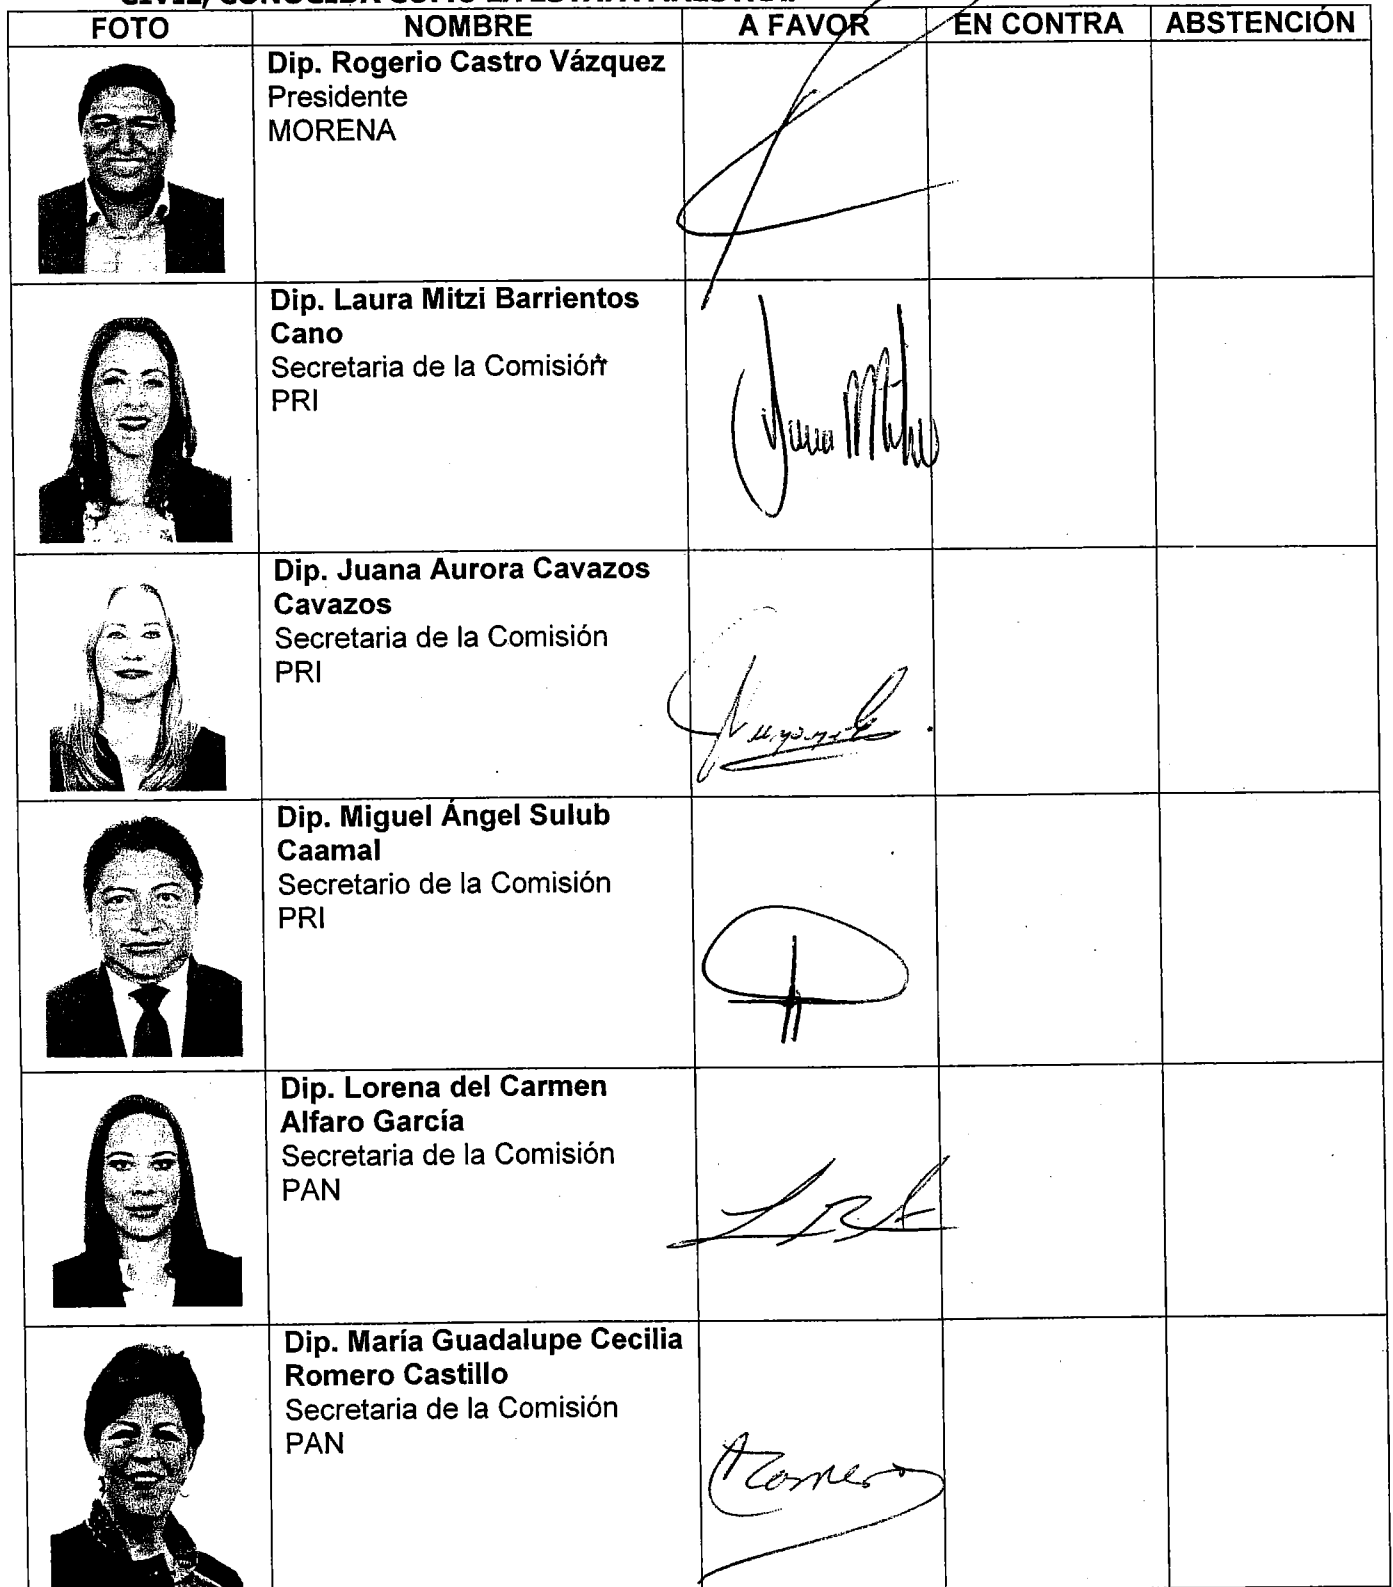 FOTO NOMBRE A FAVOR EN CONTRA ABSTENCIÓN
Dip. Rogerio Castro Vázquez
Presidente
MORENA
Dip. Laura Mitzi Barrientos
Cano
Secretaria de la Comisión
PRI
Dip. Juana Aurora Cavazos
Cavazos
Secretaria de la Comisión
PRI
Dip. Miguel Ángel Sulub
Caamal
Secretario de la Comisión
PRI
Dip. Lorena del Carmen
Alfaro García
Secretaria de la Comisión
PAN
Dip. María Guadalupe Cecilia
Romero Castillo
Secretaria de la Comisión
PAN